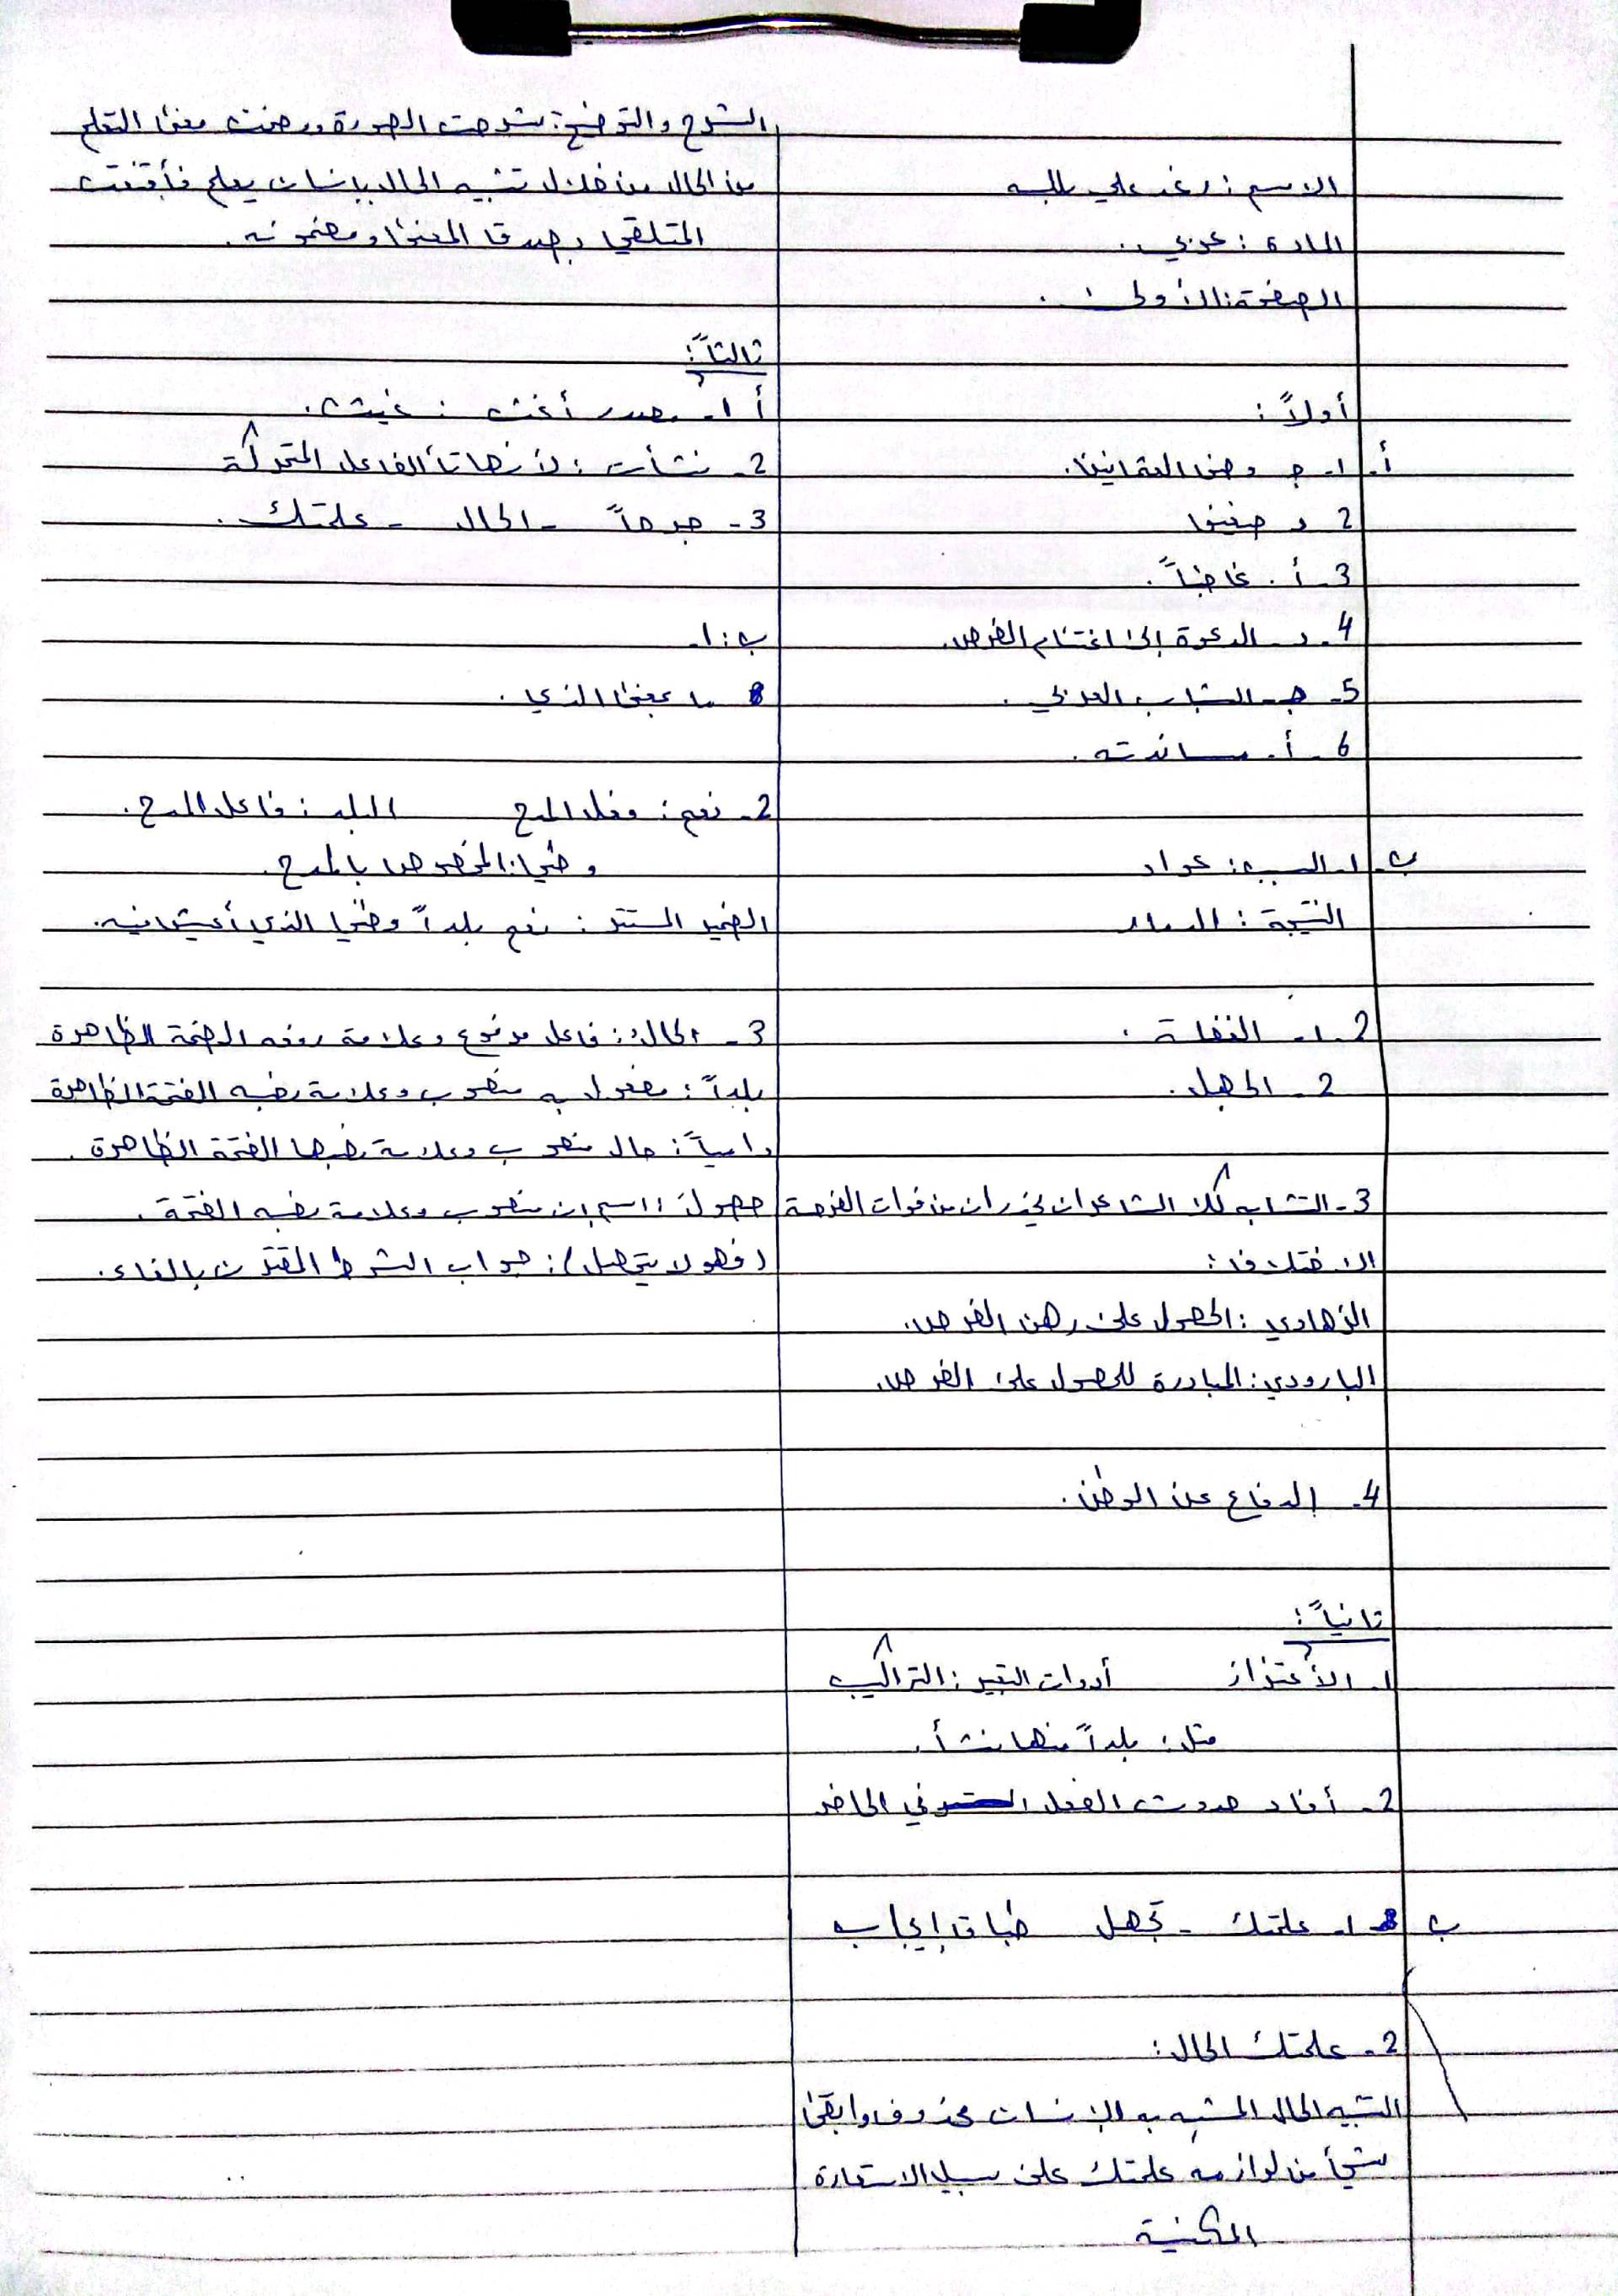 الاسم: رغد علي بلبه
المادة: عربي.
الصفحة: الأولى.
أولاً:
أ. 1- ج رفض العثمانيين.
2 د ضعيفا
3- أ. غاضباً.
4- د- الدعوة إلى اغتنام الفرص.
5- جـ- الشباب العربي.
6- أ. مساندته.
ب- 1- السبب: عواد
النتيجة:
2- 1- الغفلة.
2- الجهل.
3- التشابه كلا الشاعران يحذران من فوات الفرصة
الاختلاف:
الزهاوي: الحصول على رهن الفرص.
البارودي: المبادرة للحصول على الفرص.
4- الدفاع عن الوطن.
ثانياً:
1- الأعتزاز أدوات التعبير: التراكيب
مثل: بلداً منها نشأ.
2- أفاد حدوث الفعل في الحاضر
ب 1- علمتك - تجهل طباق إيجاب
2- علمتك الحال:
التشبيه الحال المشبه به الإنسان محذوف وابقى
شيأ من لوازمه علمتك على سبيل الاستعارة
المكنية
الشرح والتوضيح: شرحت الصورة ووضحت معنى التعلم
من الحال من خلال تشبيه الحال بإنسان يعلم فأقنعت
المتلقي بصدق المعنى ومضمونه.
ثالثاً:
أ 1- مصدر أغث: غيث.
2- نشأت: لأنها تأ الفاعل المتحركة
3- جرحاً - الحال - علمتك.
ب: 1-
ما بمعنى الذي.
2- نعم: فعل المدح البلد: فاعل المدح.
وطني: المخصوص بالمدح.
الضمير المستتر: نعم بلداً وطني الذي أعيش فيه.
3- الحال: فاعل مرفوع وعلامة رفعه الضمة الظاهرة
بلداً: مفعول به منصوب وعلامة نصبه الفتحة الظاهرة
دامياً: حال منصوب وعلامة نصبها الفتحة الظاهرة.
جهول: اسم إن منصوب وعلامة نصبه الفتحة.
(فهو لا يتجهل): جواب الشرط المقترن بالفاء.